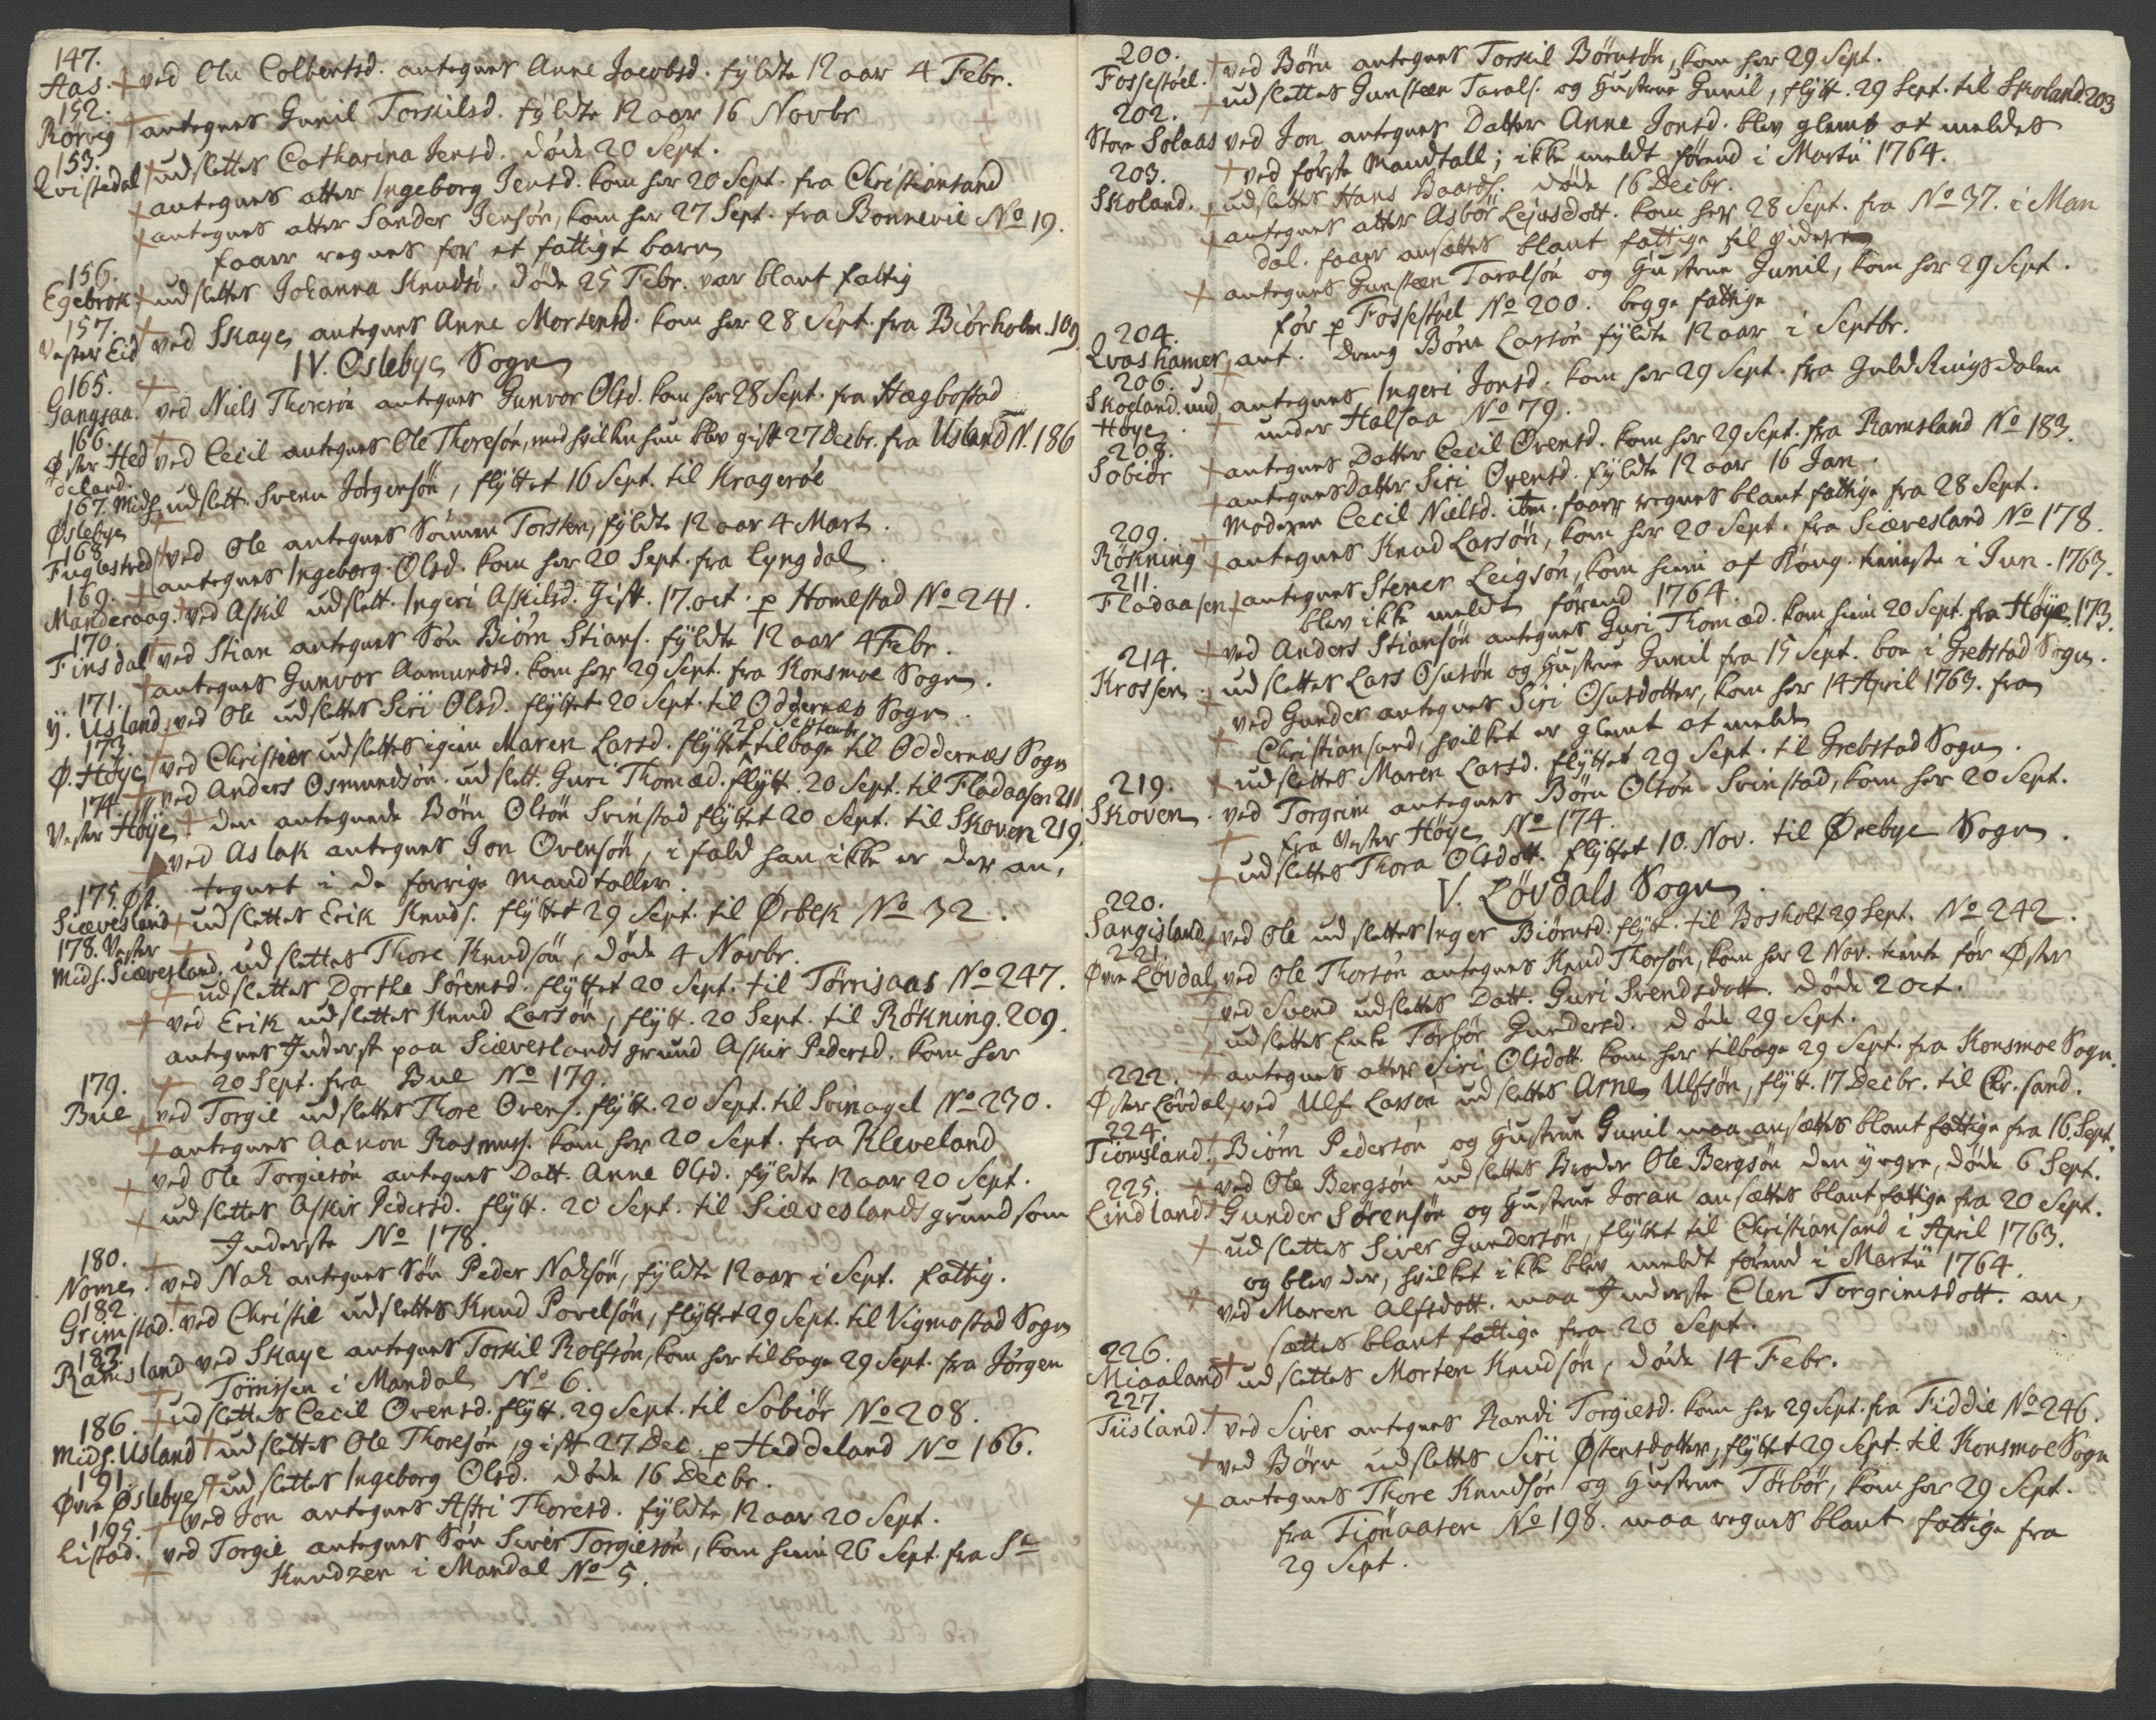 147.
Aas. + ved Olu Colbentsd. antegnes Anne Jacobsd. fyldte 12 aar 4 Febr.
152.
Rörvig + antegnes Gunil Torkilsd. fyldte 12 aar 16 Novbr
153.
Qvistedal + udslettes Catharina Jensd. döde 20 Sept.
+ antegnes atter Ingeborg Jensd. kom her 20 Sept. fra Christiansand
+ antegnes atter Sander Jensön, kom her 27 Sept. fra Bonnevie No 19.
faar regnes for et fattigt barn
156.
Egebrok + udslettes Johanna Knudsd. döde 25 Febr. var blant fattig
157.
Vester Eid + ved Skaye antegnes Anne Mortensd. kom her 28 Sept. fra Biörholm. 109
IV. Öslebye Sogn
165.
Gangsaa. + ved Niels Thoresön antegnes Gunvor Olsd. kom her 28 Sept. fra Hægbostad
166.
Øster Hed + ved Cecil antegnes Ole Thoresön, med hvilken hun blev gift 27 Decbr. fra Usland N. 186
deland.
167. Mids. udslett. Svenn Jörgensön, flyttet 16 Sept. til Krageröe
Øslebye + ved Ole antegnes Sönnen Torsten, fyldte 12 aar 4 Mart.
168.
Fuglestved + antegnes Ingeborg Olsd. kom her 20 Sept. fra Lyngdal.
169.
Manderaag. + ved Askil udslett. Ingeri Askilsd. Gift. 17. oct. p Homestad No 241.
170.
Finsdal + ved Stian antegnes Sön Biörn Stians. fyldte 12 aar 4 Febr.
+ antegnes Gunvor Aamundsd. kom her 29 Sept. fra Konsmoe Sogn.
171.
Y. Usland, ved Ole udslettes Siri Olsd. flyttet 20 Sept. til Oddernæs Sogn.
20 Septembr
173.
Ø. Höye + ved Christier udslettes igien Maren Larsd. flyttet tilbage til Oddernæs Sogn
+ ved Anders Osmundsön udslett. Guri Thomæd. flytt. 20 Sept. til Fladaasen 211
174.
Vester Höye + den antegnede Börn Olsön Svinstad flyttet 20 Sept. til Skoven 219.
ved Aslak antegnes Jon Ovensön, i fald han ikke er der an,
tegnet i de forrige Mandtaller.
175. Øst.
Siævesland + udslettes Erik Knuds. flyttet 29 Sept. til Ørbek No 32.
178. Vester
Mids. Siævesland. udslettes Thore Knudsön, döde 4 Novbr.
+ udslettes Dorthe Sörensd. flyttet 20 Sept. til Törrisaas No 247.
+ ved Erik udslettes Knud Larsön, flytt. 20 Sept. til Rökning. 209.
antegnes Inderst paa Siæveslands grund Askir Pedersd. kom her
+ 20 Sept. fra Bue No 179.
179.
Bue ved Torgie udslettes Thore Ovens. flytt. 20 Sept. til Svinagel No 230.
+ antegnes Aanon Rasmuss. kom her 20 Sept. fra Kleveland
ved Ole Torgiesön antegnes Datt. Anne Olsd. fyldte 12 aar 20 Sept.
+ udslettes Askir Pedersd. flytt. 20 Sept. til Siæveslands grund som
Inderste No 178.
180.
Nome. + ved Nah antegnes Sön Peder Nahsön, fyldte 12 aar i Sept. fattig.
182.
Grimstad. ved Christie udslettes Knud Povelsön, flyttet 29 Sept. til Vigmostad Sogn
183.
Ramsland ved Skaye antegnes Torkil Rolfsön, kom her tilbage 29 Sept. fra Jörgen
+ Tömissen i Mandal No 6.
+ udslettes Cecil Ovensd. flytt. 29 Sept. til Sobiör No 208.
186.
Mids. Usland + udslettes Ole Thoresön, gift 27 Dec. p Heddeland No 166.
191.
Øvre Øslebye + udslettes Ingeborg Olsd. döde 16 Decbr.
+ ved Jon antegnes Astri Thoresd. fyldte 12 aar 20 Sept.
195.
Listad. ved Torgie antegnes Sön Siver Torgiesön, kom hiem 26 Sept. fra Sr
+ Knudzen i Mandal No 5.
200.
Fossestöel. + ved Börn antegnes Torkil Börnsön, kom her 29 Sept.
+ udslettes Gunsteen Tarals. og Hustrue Gunil, flytt. 29 Sept. til Skoland. 203
202.
Store Solaas ved Jon antegnes Datter Anne Jonsd. blev glemt at meldes
+ ved förste Mandtall; ikke meldt förend i Martii 1764.
203.
Skoland. + udslettes Hans Baards. döde 16 Decbr.
+ antegnes atter Asbör Leifsdott. kom her 28 Sept. fra No 37. i Man
dal. faar ansættes blant fattige til videre
+ antegnes Gunsteen Taralsön og Hustrue Gunil, kom her 29 Sept.
för p Fossestöel No 200. begge fattige
204.
Qvashamer, ant. dreng Börn Larsön fyldte 12 aar i Septbr.
206.
Skoeland. und antegnes Ingeri Jonsd. kom her 29 Sept. fra Guldkringsdalen
Höye. + under Halsaa No 79.
208.
Sobiör + antegnes Datter Cecil Ovensd. kom her 29 Sept. fra Ramsland No 183.
+ antegnes datter Siri Ovensd. fyldte 12 aar 16 Jan.
Moderen Cecil Nielsd. itm. faar regnes blant fattige fra 28 Sept.
209.
Rökning + antegnes Knud Larsön, kom her 20 Sept. fra Siævesland No 178.
211.
Fladaasen + antegnes Stener Leigsön, kom hiem af Kong. tieneste i Jun. 1763.
blev ikke meldt förend 1764.
+ ved Anders Stiansön antegnes Guri Thomæd. kom hiem 20 Sept. fra Höye. 173.
214.
Krossen. udslettes Lars Osulsön og Hustrue Gunil fra 15 Sept. boe i Grebstad Sogn.
ved Gunder antegnes Siri Osulsdotter, kom her 14 April 1763. fra
+ Christiansand, hvilket er glemt at melde
+ udslettes Maren Larsd. flyttet 29 Sept. til Grebstad Sogn.
219.
Skoven. ved Torgrim antegnes Börn Olsön Svinstad, kom her 20 Sept.
+ fra Vester Höye No 174.
+ udslettes Thora Olsdott. flyttet 10. Nov. til Ørebye Sogn.
V. Lövdals Sogn.
220.
Sangisland, ved Ole udslettes Inger Biörnsd. flytt. til Bosholt 29 Sept. No 242.
221.
Øvre Lövdal, ved Ole Thorsön antegnes Knud Thorsön, kom her 2 Nov. tiente för Øster
+ ved Svend udslettes Datt. Guri Svendsdatt. döde 2 oct.
+ udslettes Enke Torbör Gundersd. döde 29 Sept.
+ antegnes atter Siri Olsdott. kom her tilbage 29 Sept. fra Konsmoe Sogn.
222.
Øster Lövdal, ved Ulf Larsön udslettes Arne Ulfsön, flytt. 17 Decbr. til Chr. sand.
224.
Tiomsland. + Biörn Pedersön og Hustrue Gunil maa ansættes blant fattige fra 16. Sept.
+ ved Ole Bergsön udslettes Broder Ole Bergsön den yngre, döde 6 Sept.
225.
Lindland. + Gunder Sörensön og Hustrue Joran ansættes blant fattige fra 20 Sept.
+ udslettes Siver Gundersön, flyttet til Christiansand i April 1763.
og blev der, hvilket ikke blev meldt förend i Martii 1764.
+ ved Maren Alfsdott. maa Inderste Elen Torgrimsdott. an,
sættes blant fattige fra 20 Sept.
226.
Miaaland + udslettes Morten Knudsön, döde 14 Febr.
227.
Tiisland. + ved Siver antegnes Randi Torgiesd. kom her 29 Sept. fra Fiddie No 246.
+ ved Börn udslettes Siri Østensdotter, flyttet 29 Sept. til Konsmoe Sogn
+ antegnes Thore Knudsön og Hustrue Torbör, kom her 29 Sept.
fra Tiönaasen No 198. maa regnes blant fattige fra
29 Sept.